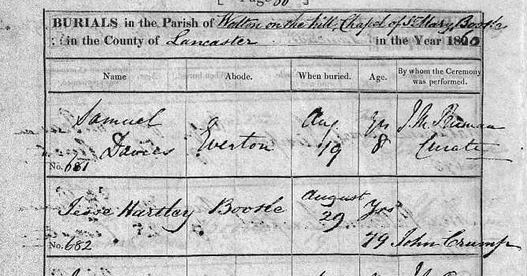 BURIALS in the Parish of Walton on the hill, Chapel of St Mary Bootle
in the County of Lancaster in the Year 1860
Name Abode. When buried. Age. By whom the Ceremony was performed.
Samuel Aug Yrs J. M.
Davies Everton 19 8 Curate
No. 681
Jesse Hartley Bootle August Yrs
29
No. 682 79 John Crump